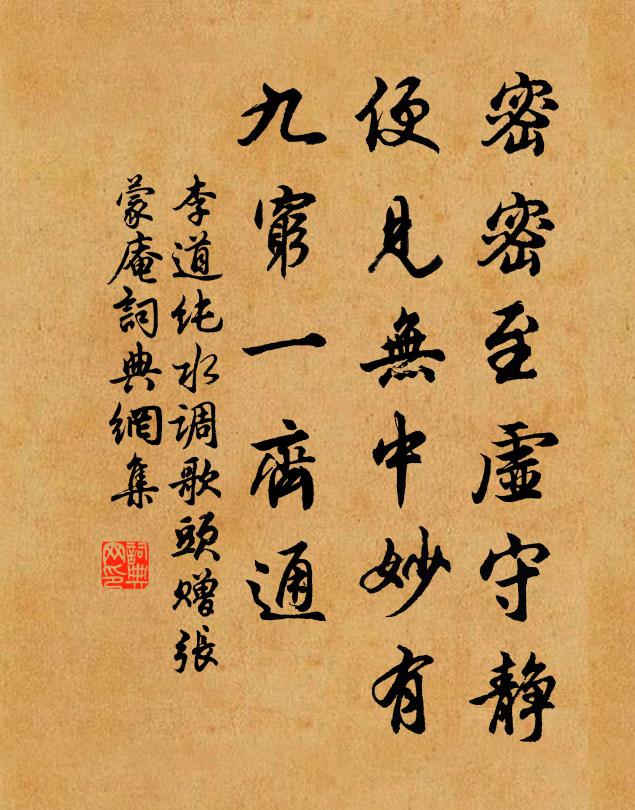 密密至虛守靜
便見無中妙有
九竅一齊通
李道纯水调歌頭赠張
蒙庵詞典網集
詞典網印